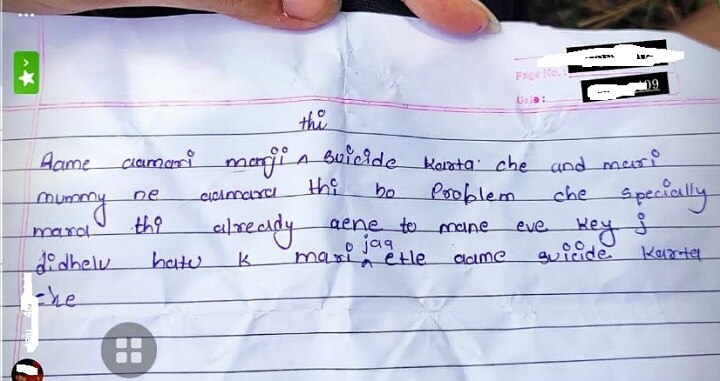 Page No.:
09
Date:
thi
Aame aamari marji ^ suicide karta che and mari
mummy ne aamara thi bo Problem che specially
mara thi already aene to mane eve key j
didhelu hatu k mari ^ jaa etle aame suicide karta
che